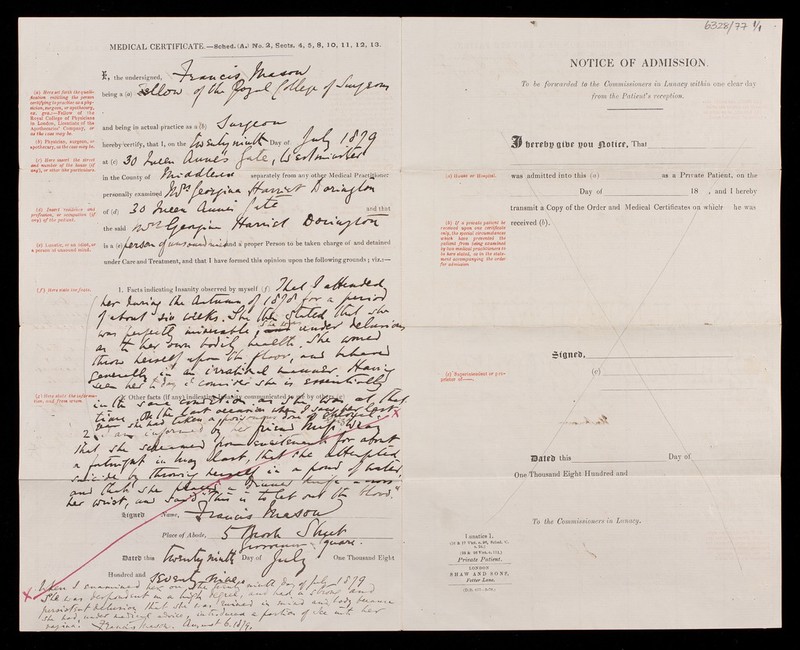 MEDICAL CERTIFICATE.—Sched. (A.) No. 2, Sects. 4, 5, 8, 10, 11, 12, 13.
I, the undersigned, Francis Mason
being a (a) Fellow of the Royal College of Surgeons
and being in actual practice as a (b) Surgeon
hereby certify, that I, on the twenty ninth Day of July 1879
at (c) 30 Queen Anne's Gate, Westminster
in the County of Middlesex separately from any other Medical Practitioner
personally examined Mrs Georgina Harriet Dorington
of (d) 30 Queen Anne's Gate and that
the said Mrs Georgina Harriet Dorington
is a (e) person of unsound mind and a proper Person to be taken charge of and detained
under Care and Treatment, and that I have formed this opinion upon the following grounds; viz.:—
1. Facts indicating Insanity observed by myself (f) That I attended
her during the Autumn of 1878 for a period
of about six weeks. She then stated that she
was perfectly miserable & was under delusions
as to her own bodily health. She would
throw herself upon the floor, and behaved
generally in an irrational manner. Having
seen her to day I consider she is essentially
2. Other facts (if any) indicating Insanity communicated to me by others (g)
in the same condition as she was at that
time. On the last occasion when I saw her last
year she had taken a poisonous dose of chloral
2. I am informed by her friend Miss
That she screamed from excitement for about
a fortnight in May last, that she attempted
suicide by throwing herself in a pond of water,
and that she placed a dinner knife across
her wrist, and said "This is to let out the blood."
Signed Name, Francis Mason
Place of Abode, 5 Brook Street
Grosvenor Square.
Dated this twenty ninth Day of July One Thousand Eight
Hundred and Seventy Nine.
When I examined her on the twenty ninth day of July 1879
she was despondent in a high degree, and had a strong and
persistent delusion that she was ruined in mind and body because
she had, under medical advice, introduced a portion of ice into her
vagina. Francis Mason. August 6. 1879.
(a) Here set forth the qualification entitling the person certifying to practise as a physician, surgeon, or apothecary, ex. gra.:—Fellow of the Royal College of Physicians in London, Licentiate of the Apothecaries' Company, or as the case may be.
(b) Physician, surgeon, or apothecary, as the case may be.
(c) Here insert the street and number of the house (if any), or other like particulars.
(d) Insert residence and profession, or occupation (if any) of the patient.
(e) Lunatic, or an idiot, or a person of unsound mind.
(f) Here state the facts.
(g) Here state the information, and from whom.
6328/79
NOTICE OF ADMISSION.
To be forwarded to the Commissioners in Lunacy within one clear day
from the Patient's reception.
I hereby give you Notice, That
(a) House or Hospital.
was admitted into this (a) as a Private Patient, on the
Day of 18 , and I hereby
transmit a Copy of the Order and Medical Certificates on which he was
received (b).
(b) If a private patient be received upon one certificate only, the special circumstances which have prevented the patient from being examined by two medical practitioners to be here stated, as in the statement accompanying the order for admission.
Signed,
(c)
(c) Superintendent or proprietor of——.
Dated this Day of
One Thousand Eight Hundred and
To the Commissioners in Lunacy.
Lunatics I.
Private Patient.
LONDON
SHAW AND SONS,
Fetter Lane.